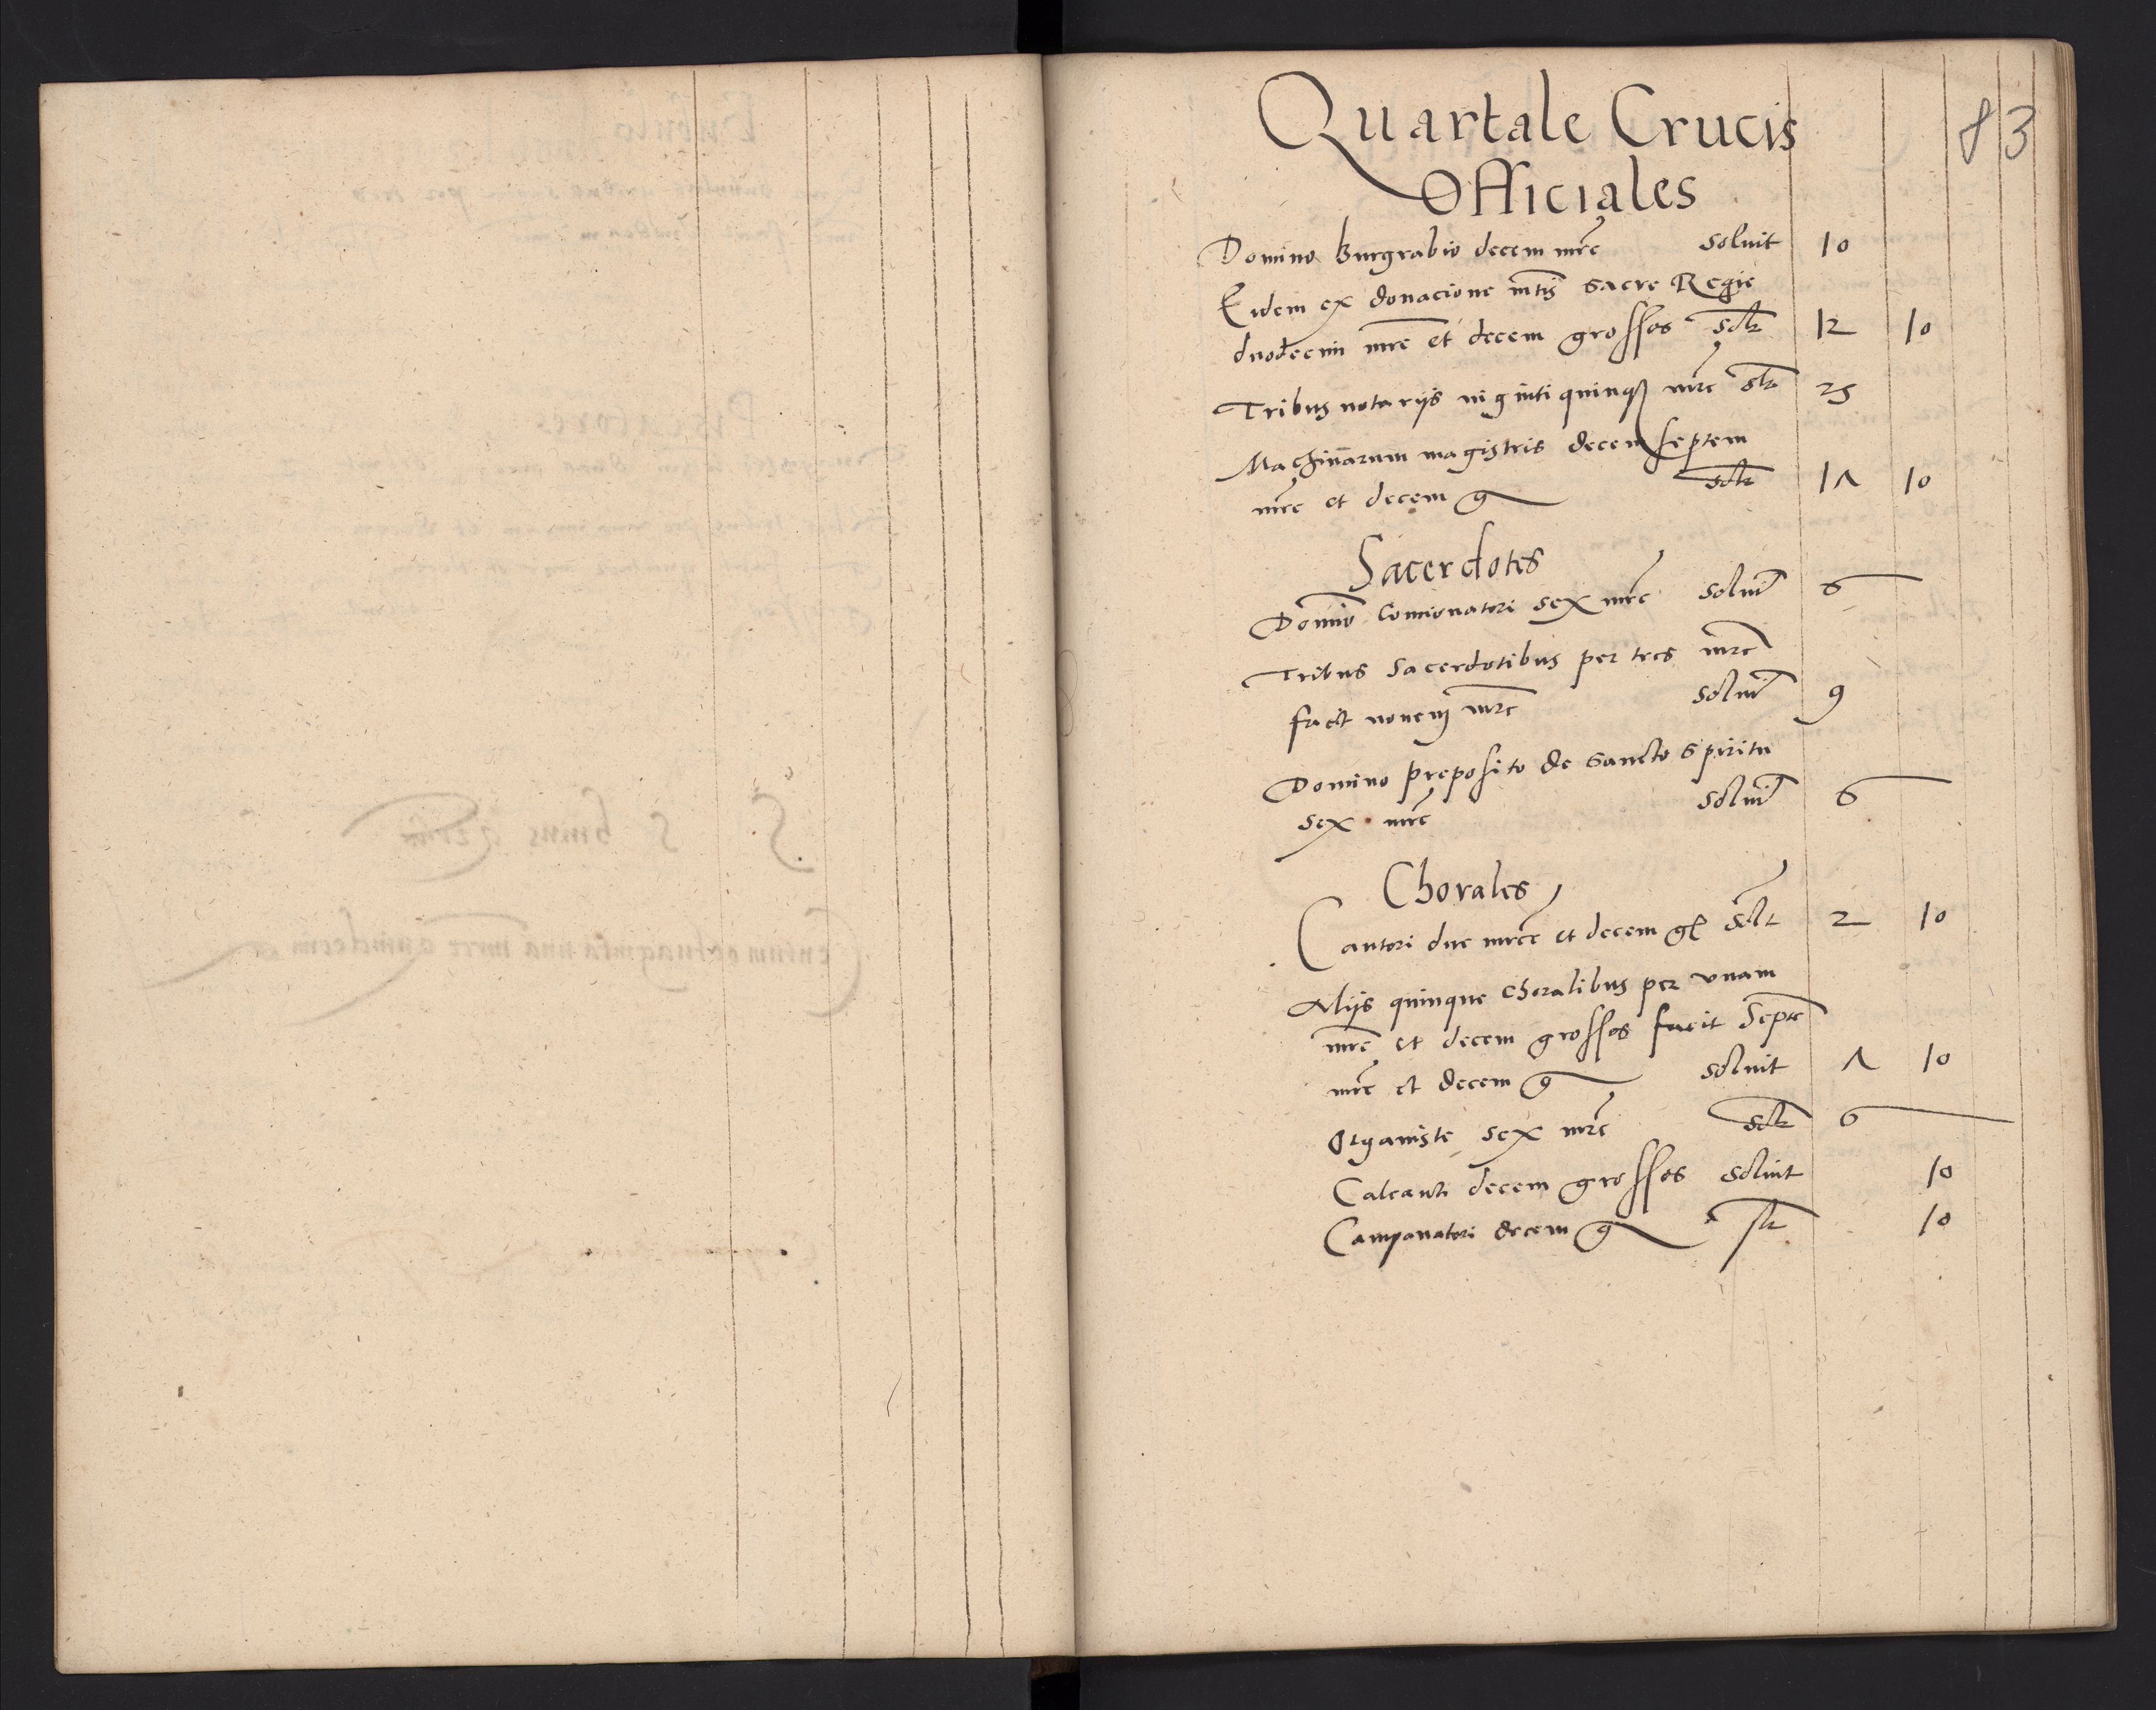 Quartale Crucis
83
Officiales
Domino Burgrabio decem mrc soluit 10
Eidem ex donacione mtis Sacre Regie
duodecim mrc et decem grossos solt 12 10
Tribus notarijs uiginti quinqȝ mrc solt 25
Machinarum magistris decem septem
mrc et decem g solt 17 10
Sacerdotes
Domino Concionatori sex mrc soluit 6
Tribus Sacerdotibus per tres mrc
facit nouem mrc soluit 9
Domino preposito de Sancto Spiritu
sex mrc soluit 6
Chorales
Cantori due mrce et decem gr solt 2 10
Alijs quinque choralibus per vnam
mrc et decem grossos facit Septe
mrc et decem g soluit 7 10
Organiste sex mrc solt 6
Calcanti decem grossos soluit 10
Campanatori decem g slt 10